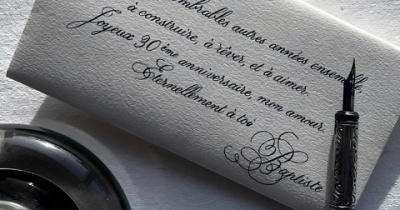 autres années ensemble,
à construire, à rêver, et à aimer.
Joyeux 30ème anniversaire, mon amour.
Éternellement à toi
Baptiste